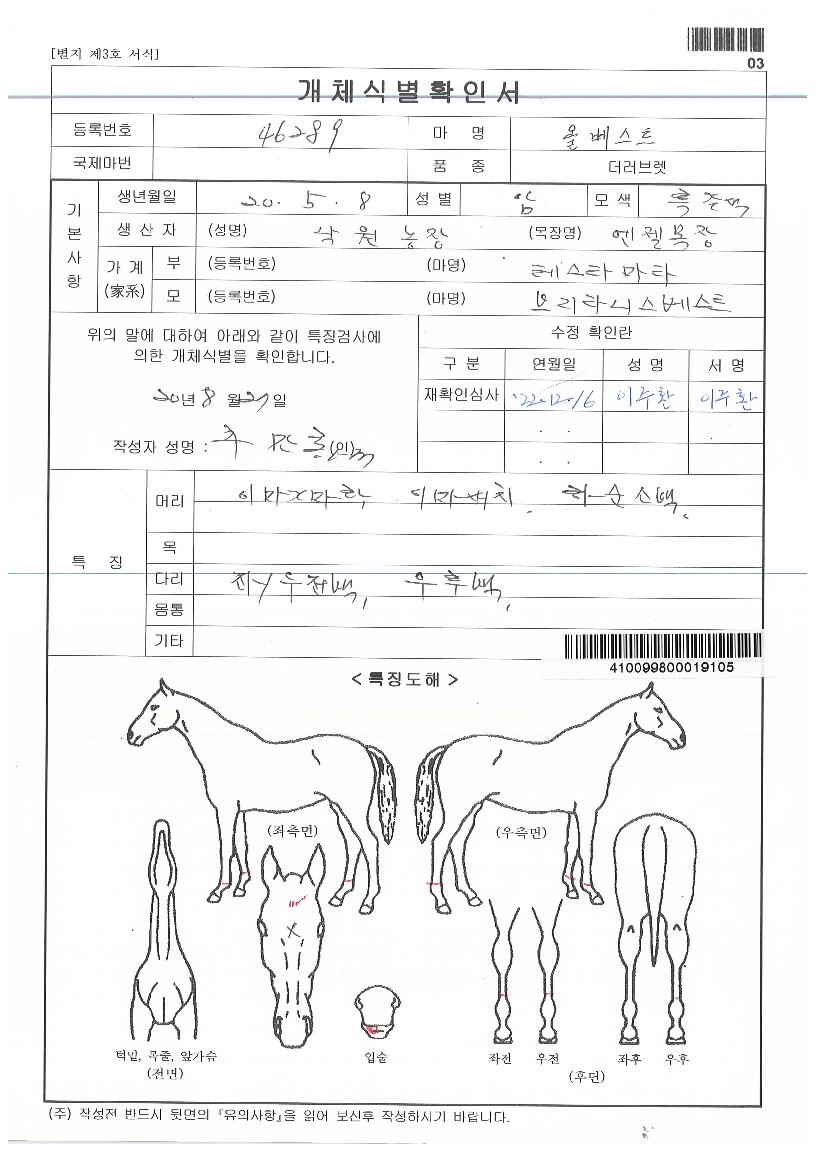 [별지 제3호 서식]
03
개체식별확인서
등록번호 46289 마 명 올베스트
국제마번 품 종 더러브렛
기본사항
생년월일 20. 5. 8 성 별 암 모 색 흑
생 산 자 (성명) 낙원농장 (목장명) 엔젤목장
가 계 (家系) 부 (등록번호) (마명) 테스타마타
모 (등록번호) (마명) 브리타니스베스트
위의 말에 대하여 아래와 같이 특징검사에
의한 개체식별을 확인합니다.
20년 8 월 27 일
작성자 성명 : (인)
수정 확인란
구 분 연월일 성 명 서 명
재확인심사 '22.12.16 이주환 이주환
. .
. .
특 징
머리 이마지마락, 이마백치, 하순소백.
목
다리 좌우전백, 우후백.
몸통
기타
410099800019105
< 특징도해 >
(좌측면) (우측면)
턱밑, 목줄, 앞가슴
(전면)
입술
좌전 우전 좌후 우후
(후면)
(주) 작성전 반드시 뒷면의 『유의사항』을 읽어 보신후 작성하시기 바랍니다.